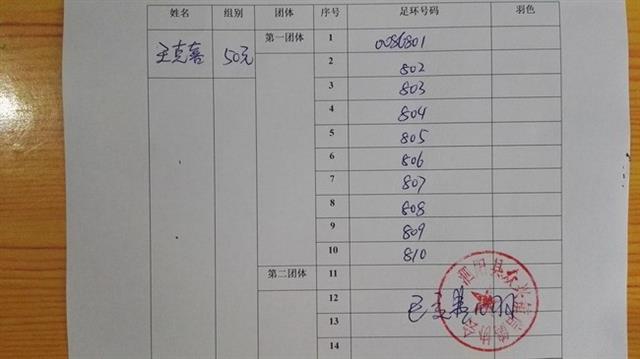 姓名 组别 团体 序号 足环号码 羽色
王克喜 50元 第一团体 1 0086801
2 802
3 803
4 804
5 805
6 806
7 807
8 808
9 809
10 810
第二团体 11
12
13
14